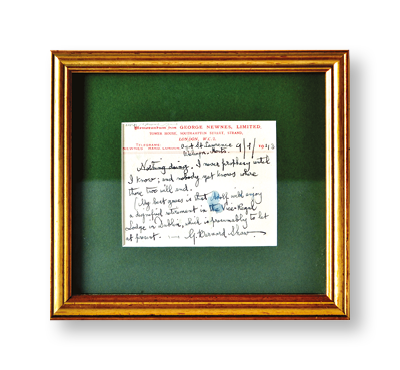 Memorandum from GEORGE NEWNES, LIMITED
TOWER HOUSE, SOUTHAMPTON STREET, STRAND,
LONDON, W.C.2.
TELEGRAMS
NEWNES RAND LONDON
Ayot St Lawrence
Welwyn, Herts.
Nothing doing. I never prophesy until
I know; and nobody yet knows where
these two will end.
(My best guess is that Adolf will enjoy
a dignified retirement in the Vice-Regal
Lodge in Dublin, which is presumably to let
at present.
G. Bernard Shaw